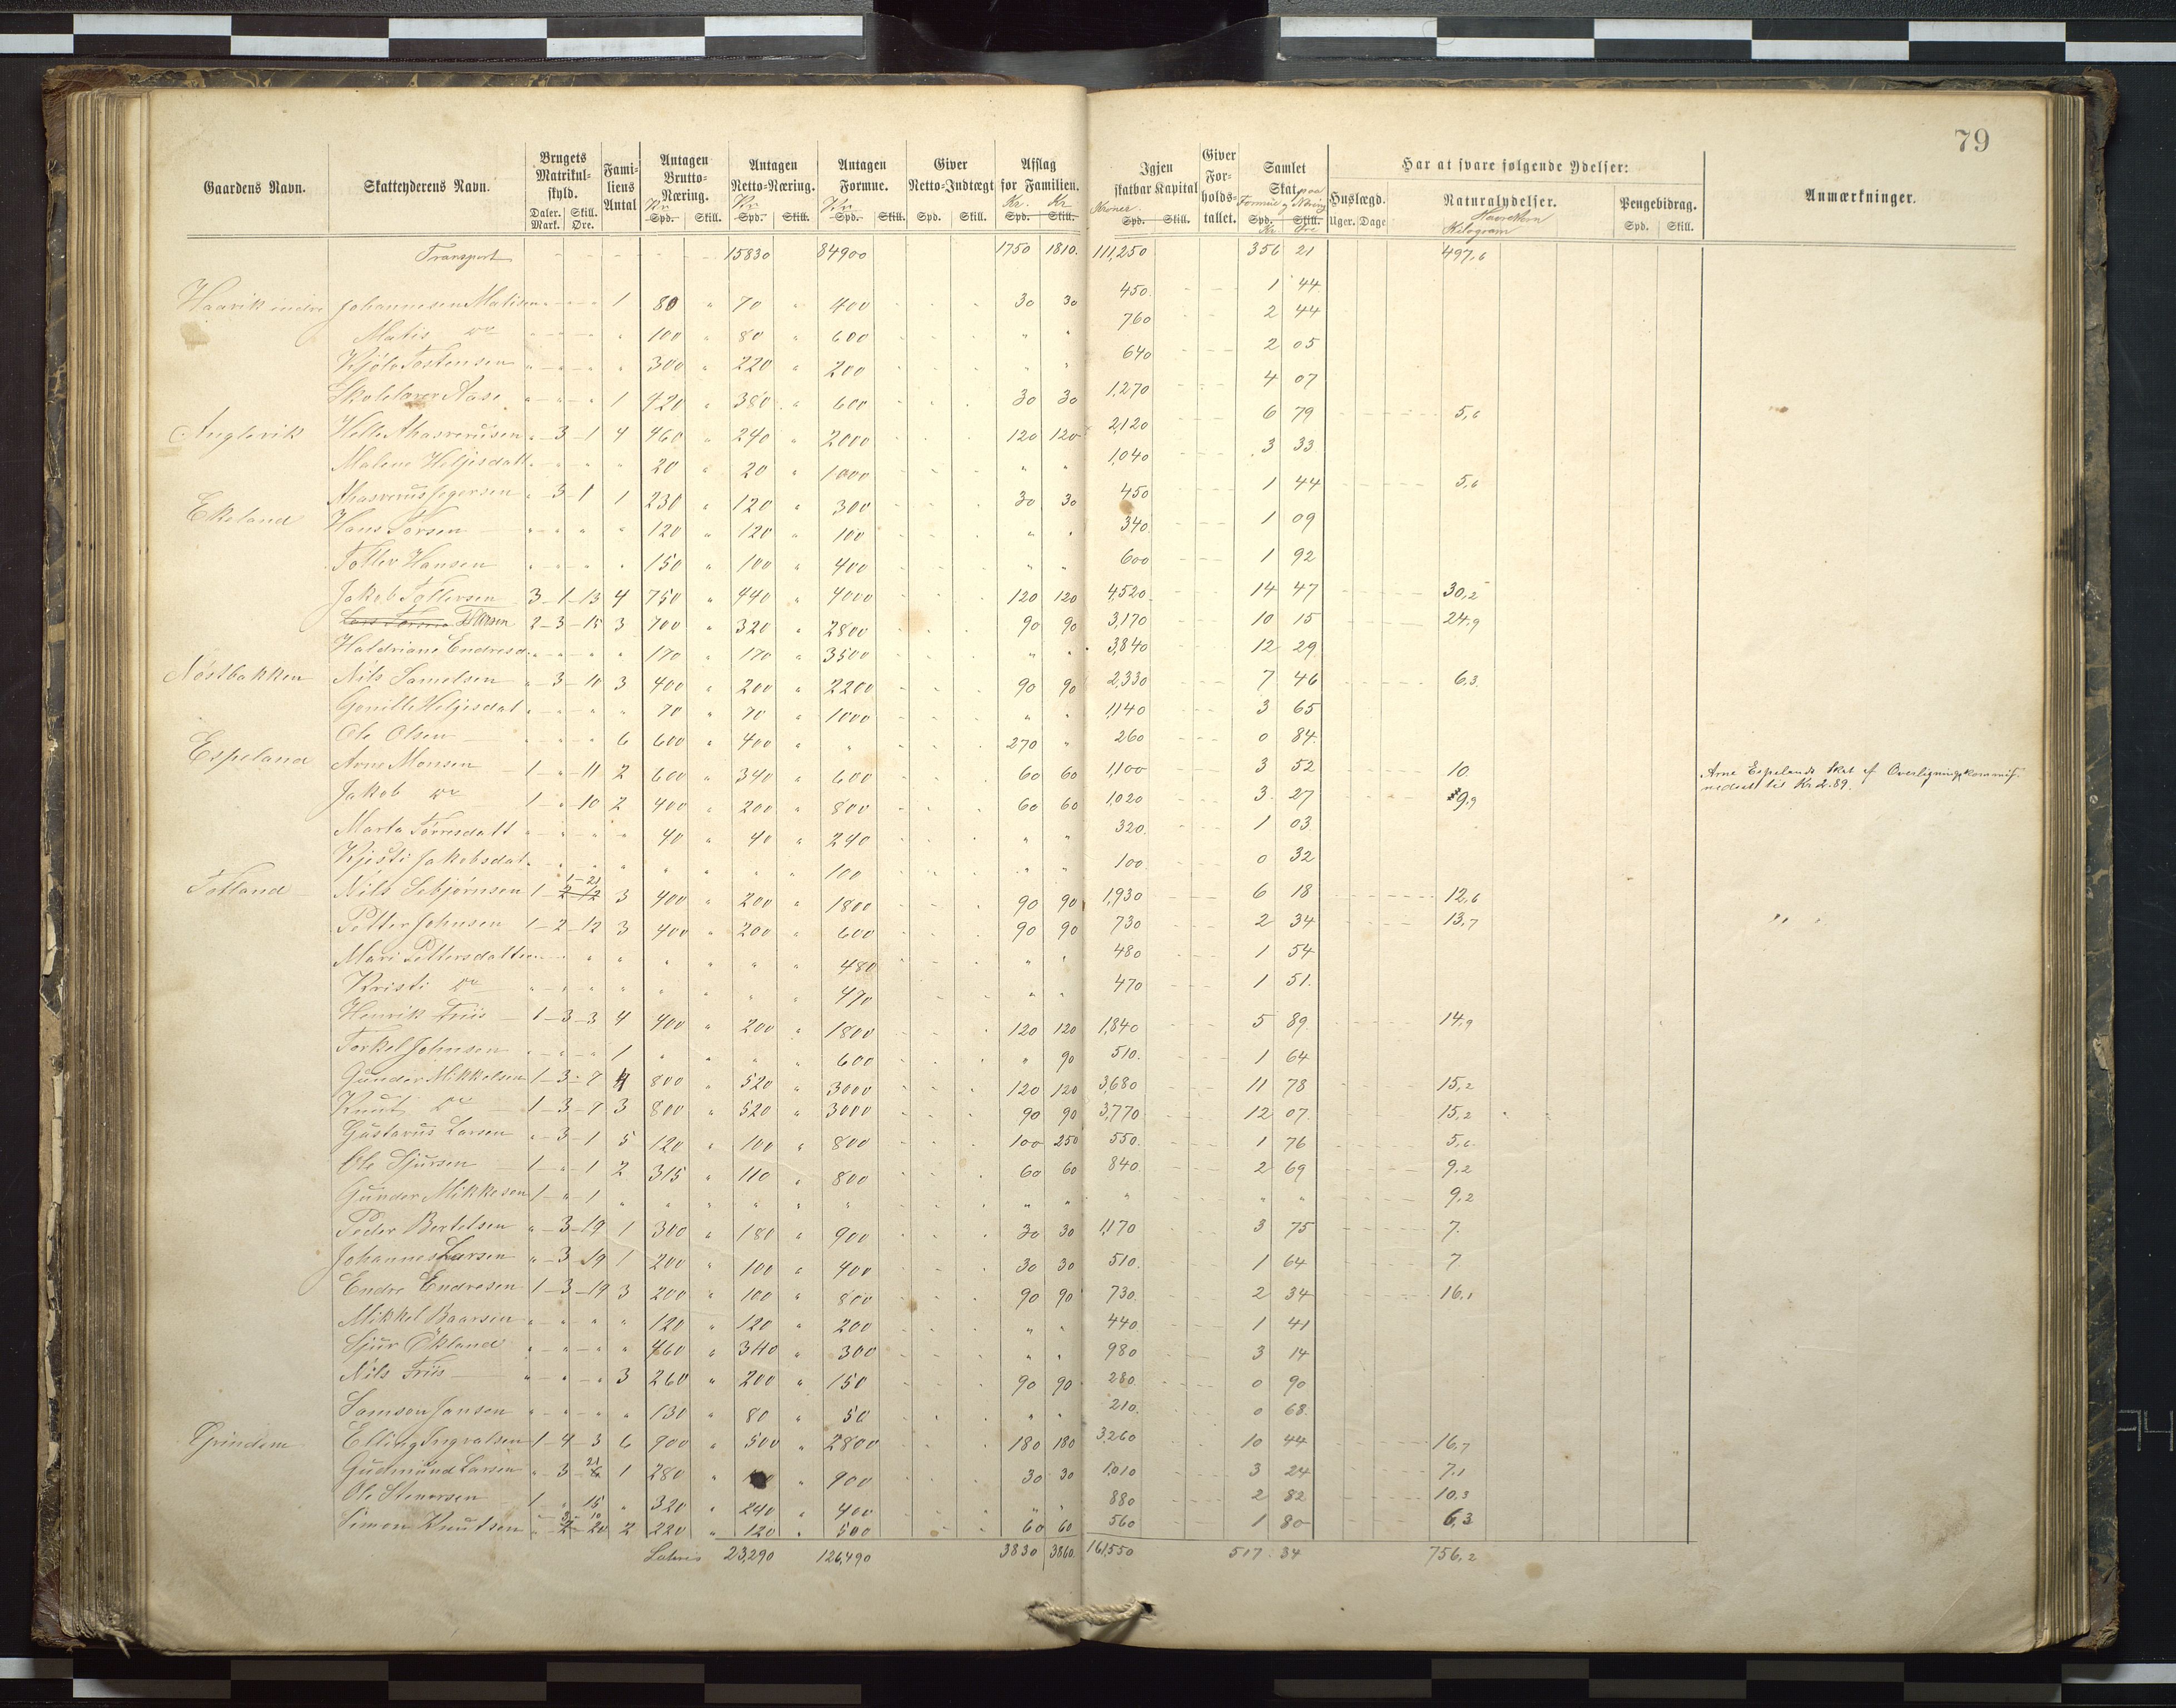 79
Gaardens Navn. Skatteyderens Navn. Brugets Matrikul-skyld. Daler. Mark. Skill. Øre. Fami-liens Antal Antagen Brutto-Næring. Kr Spd. Skill. Antagen Netto-Næring. Kr Spd. Skill. Antagen Formue. Kr Spd. Skill. Giver Netto-Indtægt Spd. Skill. Afslag for Familien. Kr. Kr Spd. Skill. Igjen skatbar Kapital Kroner Spd. Skill. Giver For-holds-tallet. Samlet Skat paa Formue og Næring Spd. Skill. Kr Øre Har at svare følgende Ydelser: Huslægd. Uger. Dage Naturalydelser. Havrekorn Kilogram Pengebidrag. Spd. Skill. Anmærkninger.
Transport 15830 84900 1750 1810. 111,250 356 21 497,6
Haavik indre Johannesen Matisen 1 80 70 400 30 30 450 1 44
Matis do 100 80 600 760 2 44
Kjølv Tostensen 300 220 200 640 2 05
Skolelærer Aase 1 420 380 600 30 30 1,270 4 07
Anglevik Helle Ahasverusen 3 1 4 460 240 2000 120 120 2,120 6 79 5,6
Malene Heljesdatt 20 20 1000 1,040 3 33
Ahasverus Jegersen 3 1 1 230 120 300 30 30 450 1 44 5,6
Ekeland Hans Torsen 120 120 100 340 1 09
Tollev Hansen 150 100 400 600 1 92
Jakob Tollevsen 3 1 13 4 750 440 4000 120 120 4,520 14 47 30,2
Lars 2 3 15 3 700 320 2800 90 90 3,170 10 15 24,9
Haldriane Endresd. 170 170 3500 3,840 12 29
Nøstbakken Nils Samelsen 3 10 3 400 200 2200 90 90 2,330 7 46 6,3
Gonille Heljesdat 70 70 1000 1,140 3 65
Ole Olsen 6 600 400 270 260 0 84
Espeland Arne Monsen 1 11 2 600 340 600 60 60 1,100 3 52 10 Arne Espelands Skat af Overligningskommis.
nedsat til Kr 2.89.
Jakob do 1 10 2 400 200 800 60 60 1,020 3 27 9,9
Marta Tørresdatt 40 40 240 320 1 03
Kjesti Jakobsdat. 100 100 0 32
Totland Nils Sebjørnsen 1 2 12 1-21 3 400 200 1800 90 90 1,930 6 18 12,6
Petter Johnsen 1 2 12 3 400 200 600 90 90 730 2 34 13,7
Mari Pettersdatter 480 480 1 54
Kristi do 470 470 1 51.
Henrik Friis 1 3 3 4 400 200 1800 120 120 1,840 5 89 14,9
Torkel Johnsen 1 600 90 510 1 64
Gunder Mikkelsen 1 3 7 4 800 520 3000 120 120 3,680 11 78 15,2
Knut do 1 3 7 3 800 520 3000 90 90 3,770 12 07 15,2
Gustavus Larsen 3 1 5 120 100 800 100 250 550 1 76 5,6
Ole Sjursen 1 1 2 315 110 800 60 60 840 2 69 9,2
Gunder Mikkesen 1 1 9,2
Peder Bertelsen 3 19 1 300 180 900 30 30 1,170 3 75 7.
Johannes Larsen 3 19 1 200 100 400 30 30 510 1 64 7
Endre Endresen 1 3 19 3 200 100 800 90 90 730 2 34 16,1
Mikkel Baarsen 120 120 200 440 1 41
Sjur Økland 460 340 300 980 3 14
Nils Friis 3 260 200 150 90 90 280 0 90
Samson Jansen 130 80 50 210 0 68
Grindem Elling Ingvalsen 1 4 3 6 900 500 2800 180 180 3,260 10 44 16,7
Gudmund Larsen 3 21 1 280 900 30 30 1,010 3 24 7,1
Ole Stenersen 1 15 320 240 400 880 2 82 10,3
Simon Knutsen 2 20 3 10 2 220 120 500 60 60 560 1 80 6,3
Lateris 23,290 126,490 3830 3860. 161,550 517 34 756,2